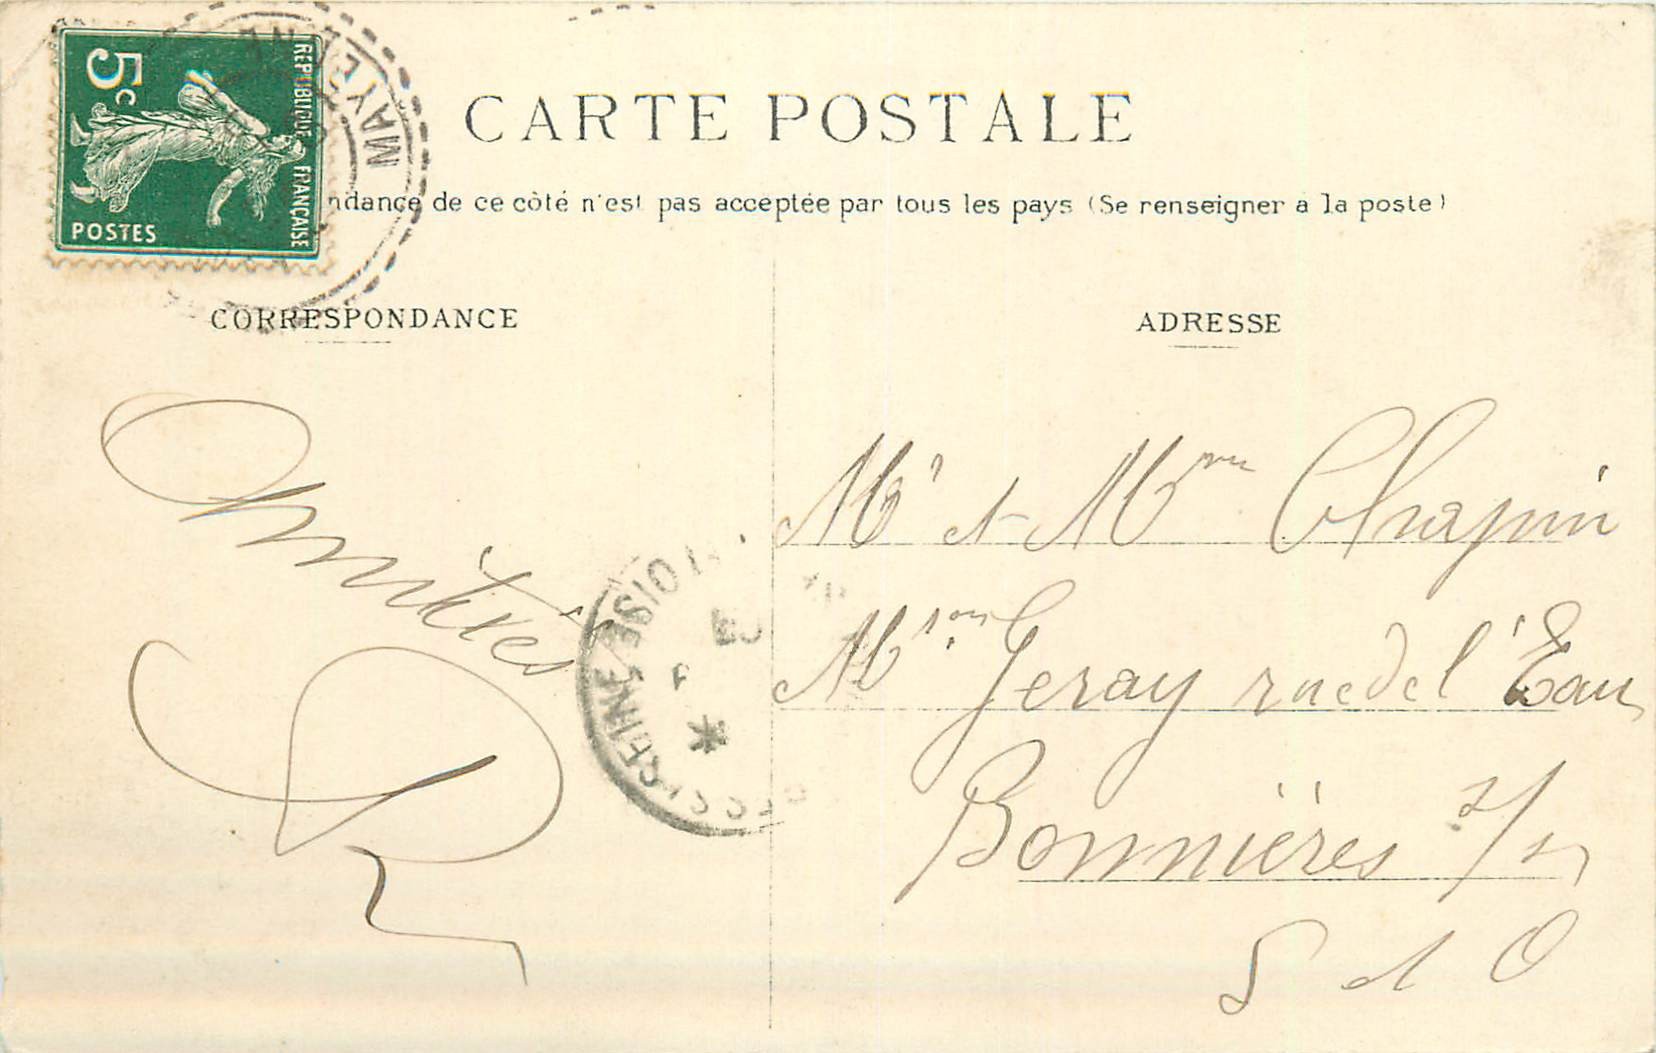 5c
REPUBLIQUE FRANÇAISE
POSTES
MAYENNE
CARTE POSTALE
ndance de ce côté n'est pas acceptée par tous les pays (Se renseigner à la poste)
CORRESPONDANCE
ADRESSE
Amitiés
SEINE-ET-OISE
Mr et Mme Chapin
Mson Geray rue de l'Eau
Bonnières s/s
S et O